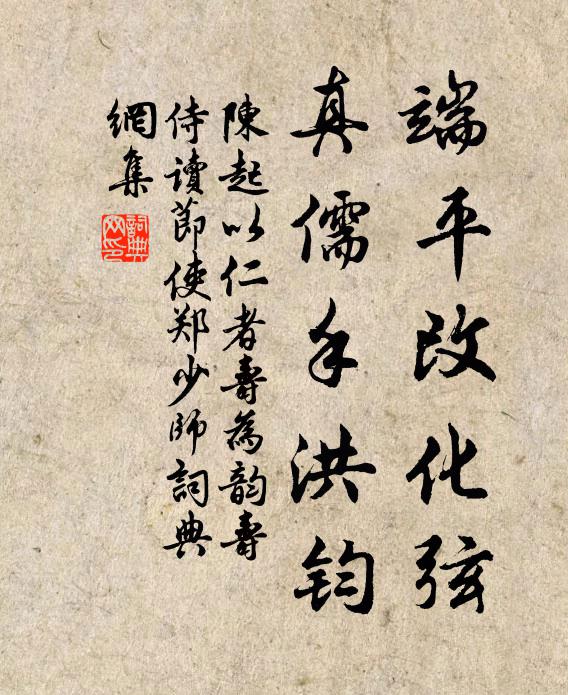 端平改化弦
真儒手洪钧
陳起以仁者壽為韵壽
侍讀節使郑少师詞典
網集
詞典
网印